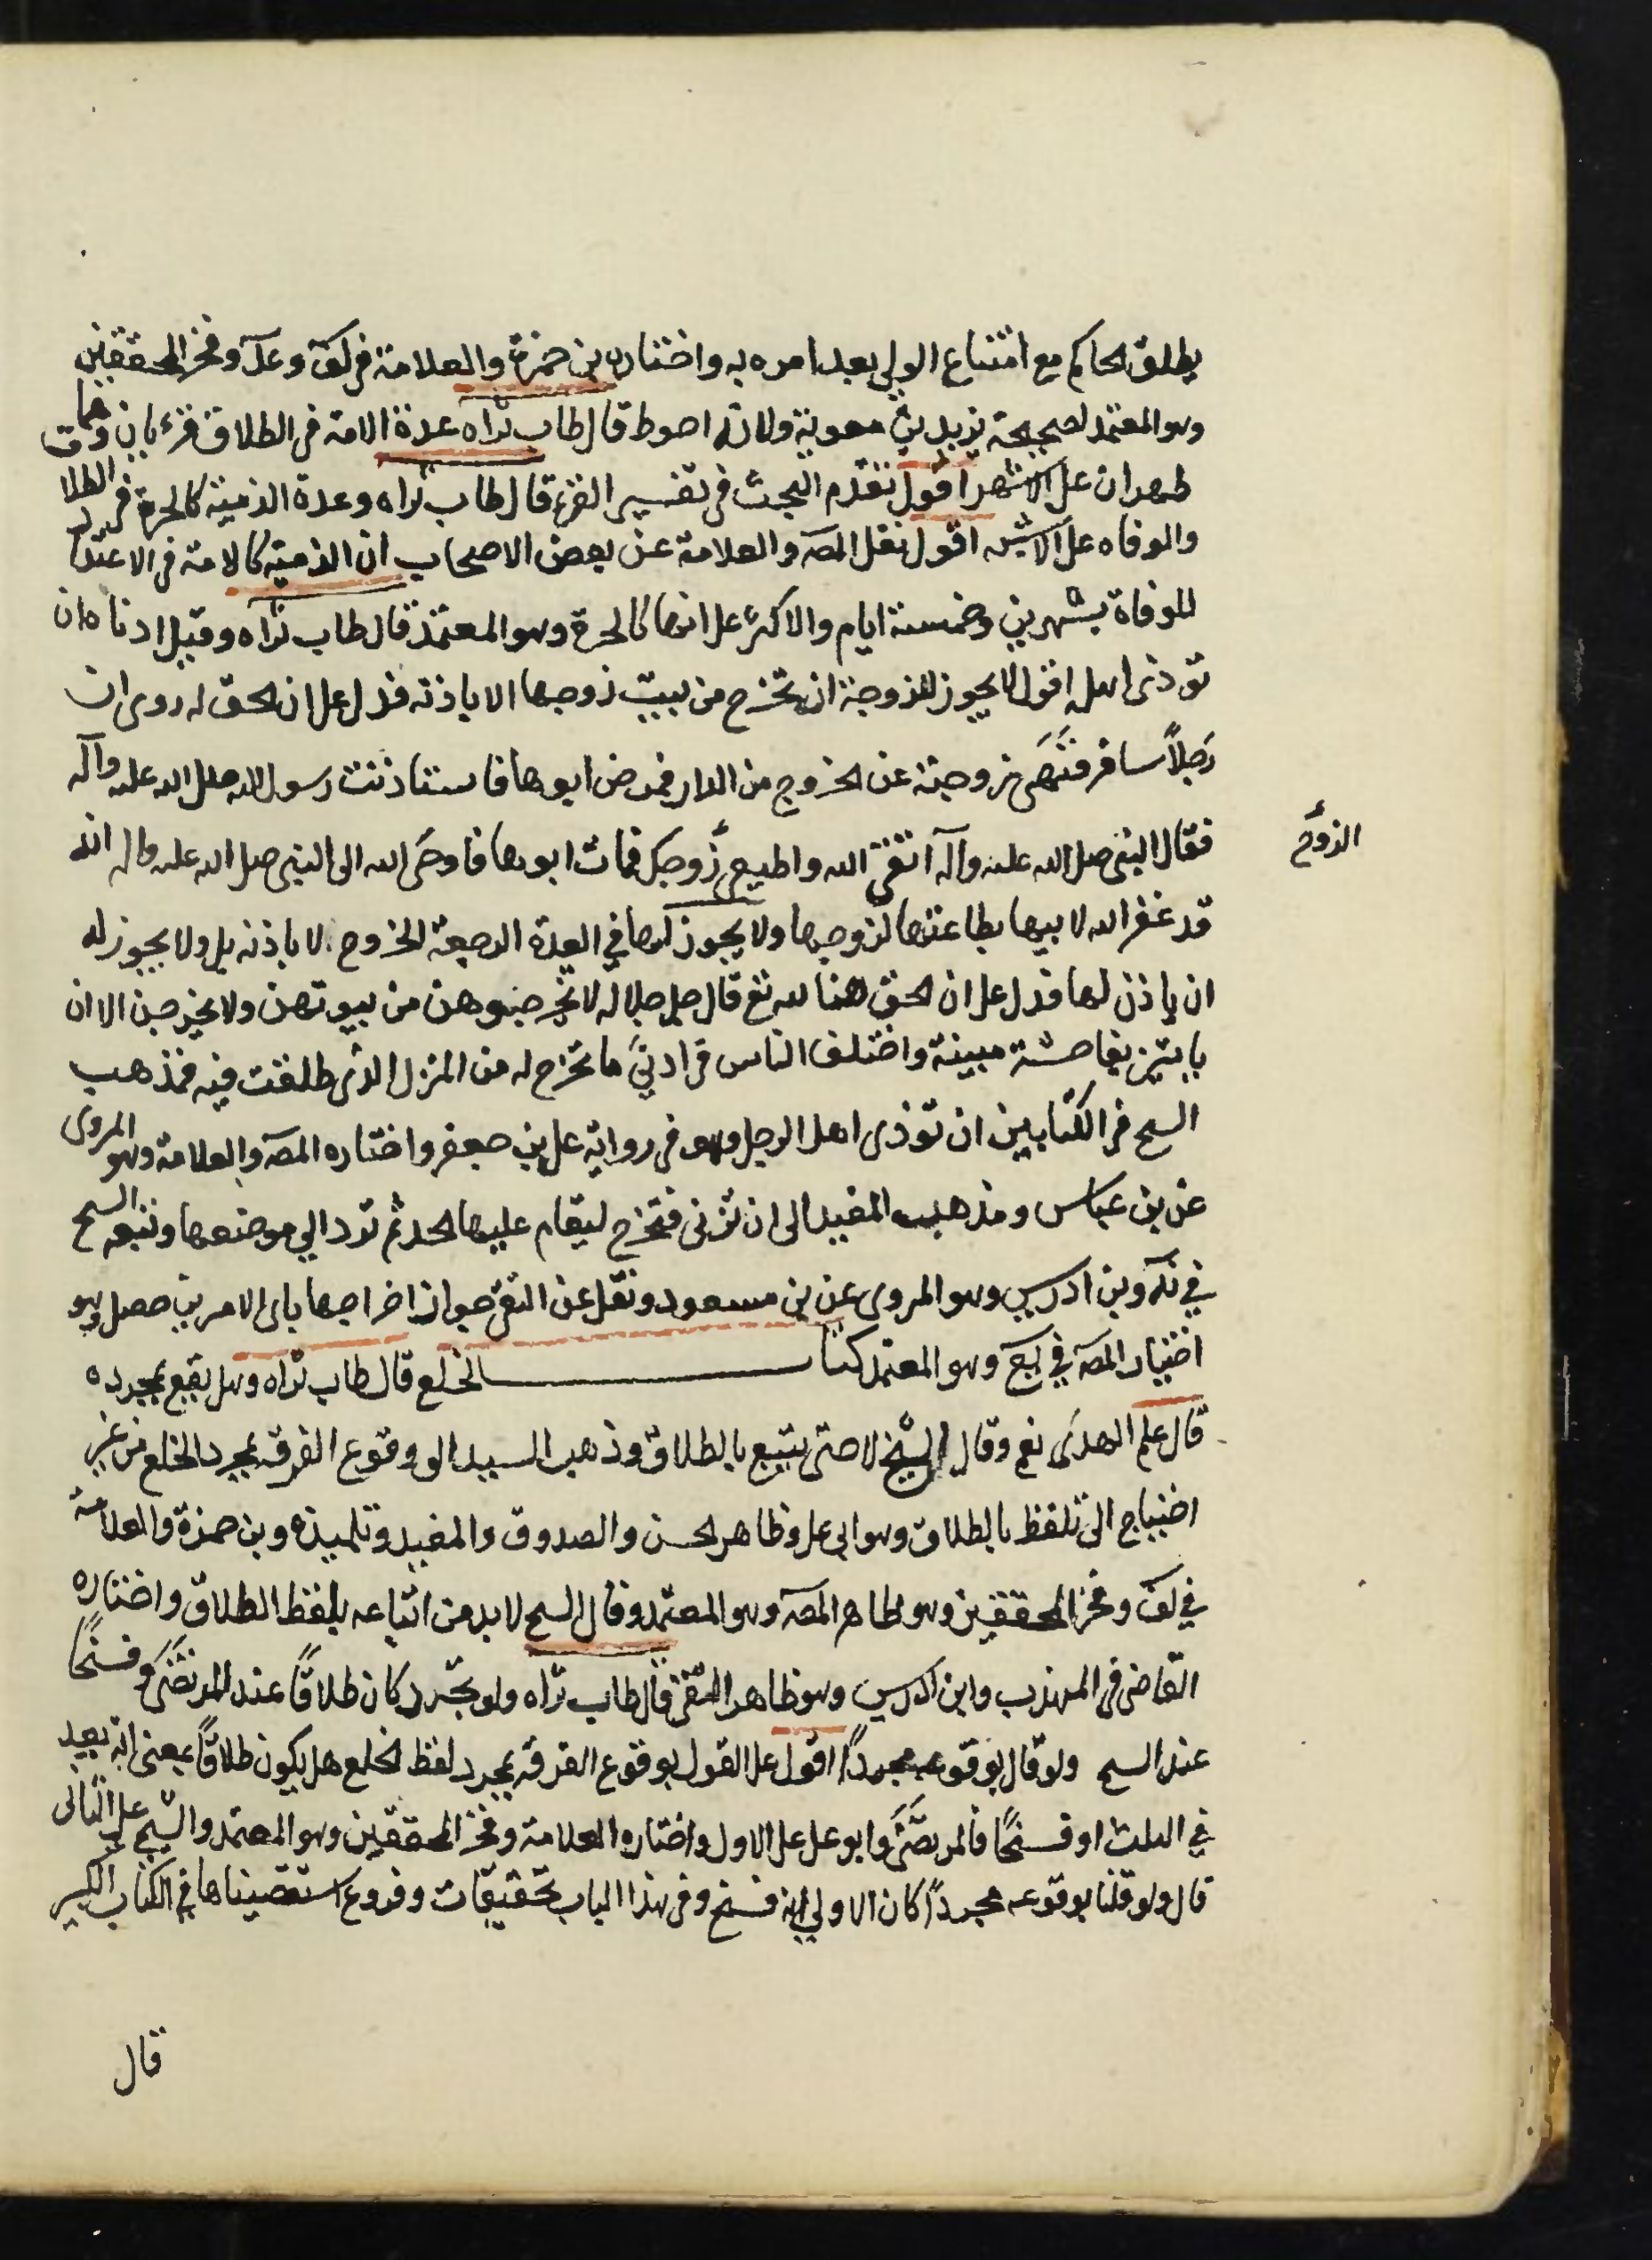 يطلق الحاكم مع امتناع الولي بعد امره به واختاره بن حمزة والعلامة في لف وعد وفخر المحققين
وهو المعتمد لصحيحة يزيد بن معوية ولانه احوط قال طاب ثراه عدة الامة في الطلاق قرءبان وهما
طهران على الاشهر اقول تقدم البحث في تفسير القرء قال طاب ثراه وعدة الذمية كالحرة في الطلاق
والوفاه على الاشبه اقول نقل المص والعلامة عن بعض الاصحاب ان الذمية كالامة في الاعتداد
للوفاة بشهرين وخمسة ايام والاكثر على انها كالحرة وهو المعتمد قال طاب ثراه وقيل ادناه ان
توذى اهله اقول لا يجوز للزوجة ان تخرج من بيت زوجها الا باذنه فدل على ان الحق له روى ان
رجلاً سافر فنهى زوجته عن الخروج من الدار فمرض ابوها فاستاذنت رسول الله صلى الله عليه وآله
فقال النبى صلى الله عليه وآله اتقي الله واطيعي زوجك فمات ابوها فاوحى الله الى النبى صلى الله عليه واله انه
الزوج
قد غفر الله لابيها بطاعتها لزوجها ولا يجوز لها في العدة الرجعية الخروج الا باذنه بل ولا يجوز له
ان ياذن لها فدل على ان الحق هنا لله تع قال جل جلاله لا تخرجوهن من بيوتهن ولا يخرجن الا ان
ياتين بفاحشة مبينة واختلف الناس في ادنى ما تخرج له من المنزل الذى طلقت فيه فمذهب
الشيخ في الكتابين ان توذى اهل الرجل وهو في رواية على بن جعفر واختاره المص والعلامة وهو المروى
عن بن عباس ومذهب المفيد الى ان تزنى فتخرج ليقام عليها الحد ثم ترد الي موضعها وتبعه الشيخ
في ية وبن ادريس وهو المروى عن بن مسعود ونقل عن التقى جواز اخراجها باى الامرين حصل وهو
اختيار المص في يع وهو المعتمد كتاب الخلع قال طاب ثراه وهل يقع بمجرده
قال علم الهدى نعم وقال الشيخ لا حتى يتبع بالطلاق وذهب السيد الى وقوع الفرقة بمجرد الخلع من غير
احتياج الى تلفظ بالطلاق وهو ابى على وظاهر الحسن والصدوق والمفيد وتلميذه وبن حمزة والعلامة
في لف وفخر المحققين وهو ظاهر المص وهو المعتمد وقال الشيخ لا بد من اتباعه بلفظ الطلاق واختاره
القاضى في المهذب وابن ادريس وهو ظاهر التقى قال طاب ثراه ولو تجرد كان طلاقاً عند المرتضى وفسخاً
عند الشيخ ولو قال بوقوعه مجرداً اقول على القول بوقوع الفرقة بمجرد لفظ الخلع هل يكون طلاقاً بمعنى انه يعد
في الثلث او فسخاً فالمرتضى وابو على على الاول واختاره العلامة وفخر المحققين وهو المعتمد والشيخ على الثانى
قال ولو قلنا بوقوعه مجرداً كان الاولي انه فسخ وفي هذا الباب تحقيقات وفروع استقصيناها في الكتاب الكبير
قال